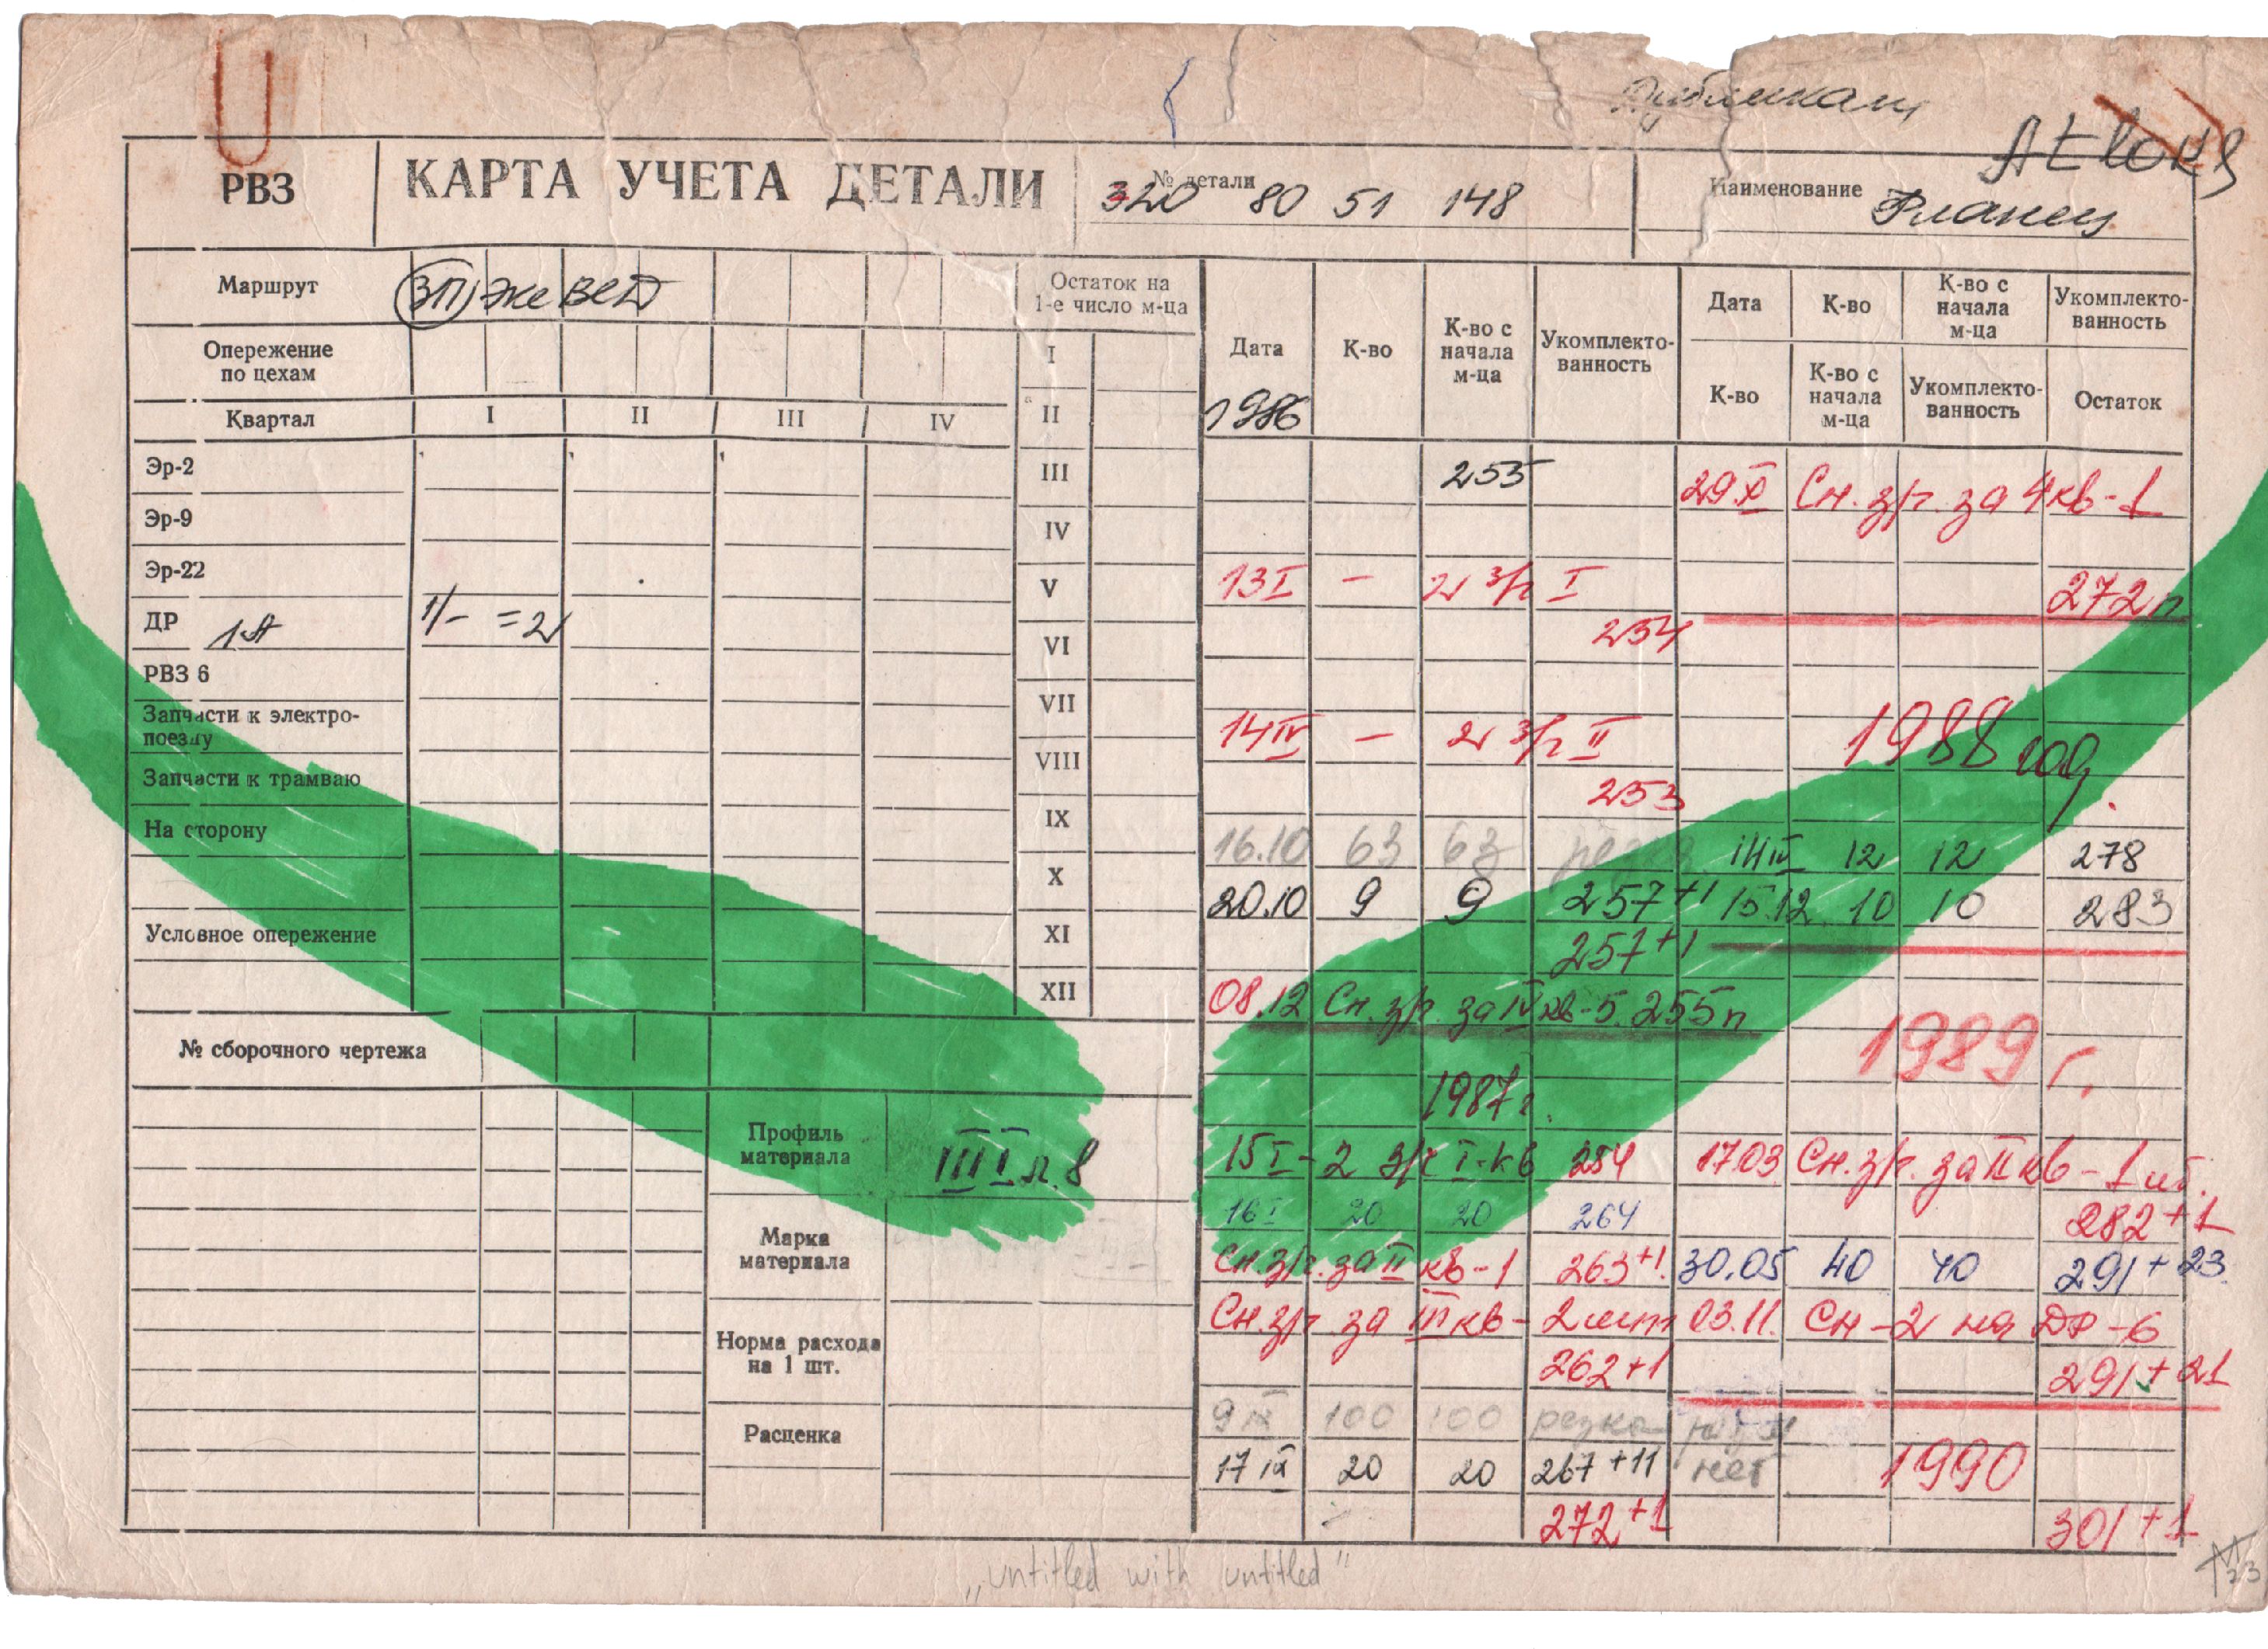 Atloks
РВЗ
КАРТА УЧЕТА ДЕТАЛИ
№ детали
320 80 51 148
Наименование
Фланец
Маршрут
ЗП
Опережение
по цехам
Квартал I II III IV
Эр-2
Эр-9
Эр-22
ДР 1А 1/- =2
РВЗ 6
Запчасти к электро-
поезду
Запчасти к трамваю
На сторону
Условное опережение
№ сборочного чертежа
Остаток на
1-е число м-ца
I
II
III
IV
V
VI
VII
VIII
IX
X
XI
XII
Профиль
материала
III I л.8
Марка
материала
Норма расхода
на 1 шт.
Расценка
Дата К-во К-во с начала м-ца Укомплекто-ванность
1986
255
13 I - 2 з/ч I
254
14 IV - 2 з/ч II
253
16.10 63 63 резка
20.10 9 9 257+1
257+1
08.12 Сн. з/ч. за IV кв-5. 255п
1987г.
15 I - 2 з/ч I-кв 254
16 I 20 20 264
Сн. з/ч. за II кв-1 263+1.
Сн. з/ч за III кв- 2 шт
262+1
9 IX 100 100 резка
17 IX 20 20 267+11 нет
272+1
Дата К-во К-во с начала м-ца Укомплекто-ванность
К-во К-во с начала м-ца Укомплекто-ванность Остаток
29.X Сн. з/ч. за 4кв-1
272п
1988 год.
14 IV 12 12 278
15.12. 10 10 283
1989 г.
17.03 Сн. з/ч. за II кв - 1 шт.
282+1
30.05 40 40 291+23
03.11. Сн -2 на ДР-6
291+21
1990
301+1
„untitled with untitled"